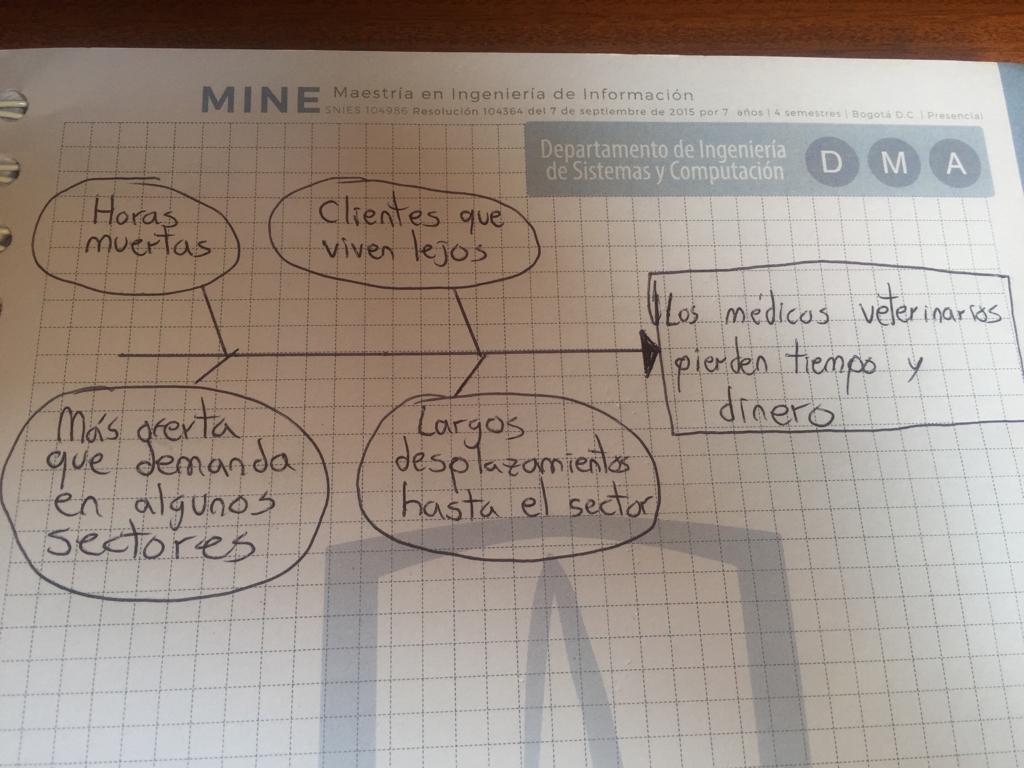 MINE Maestría en Ingeniería de Información
SNIES 104986 Resolución 104364 del 7 de septiembre de 2015 por 7 años | 4 semestres | Bogotá D.C. | Presencial
Departamento de Ingeniería
de Sistemas y Computación
D M A
Horas
muertas
Clientes que
viven lejos
Los médicos veterinarios
pierden tiempo y
dinero
Más oferta
que demanda
en algunos
sectores
Largos
desplazamientos
hasta el sector